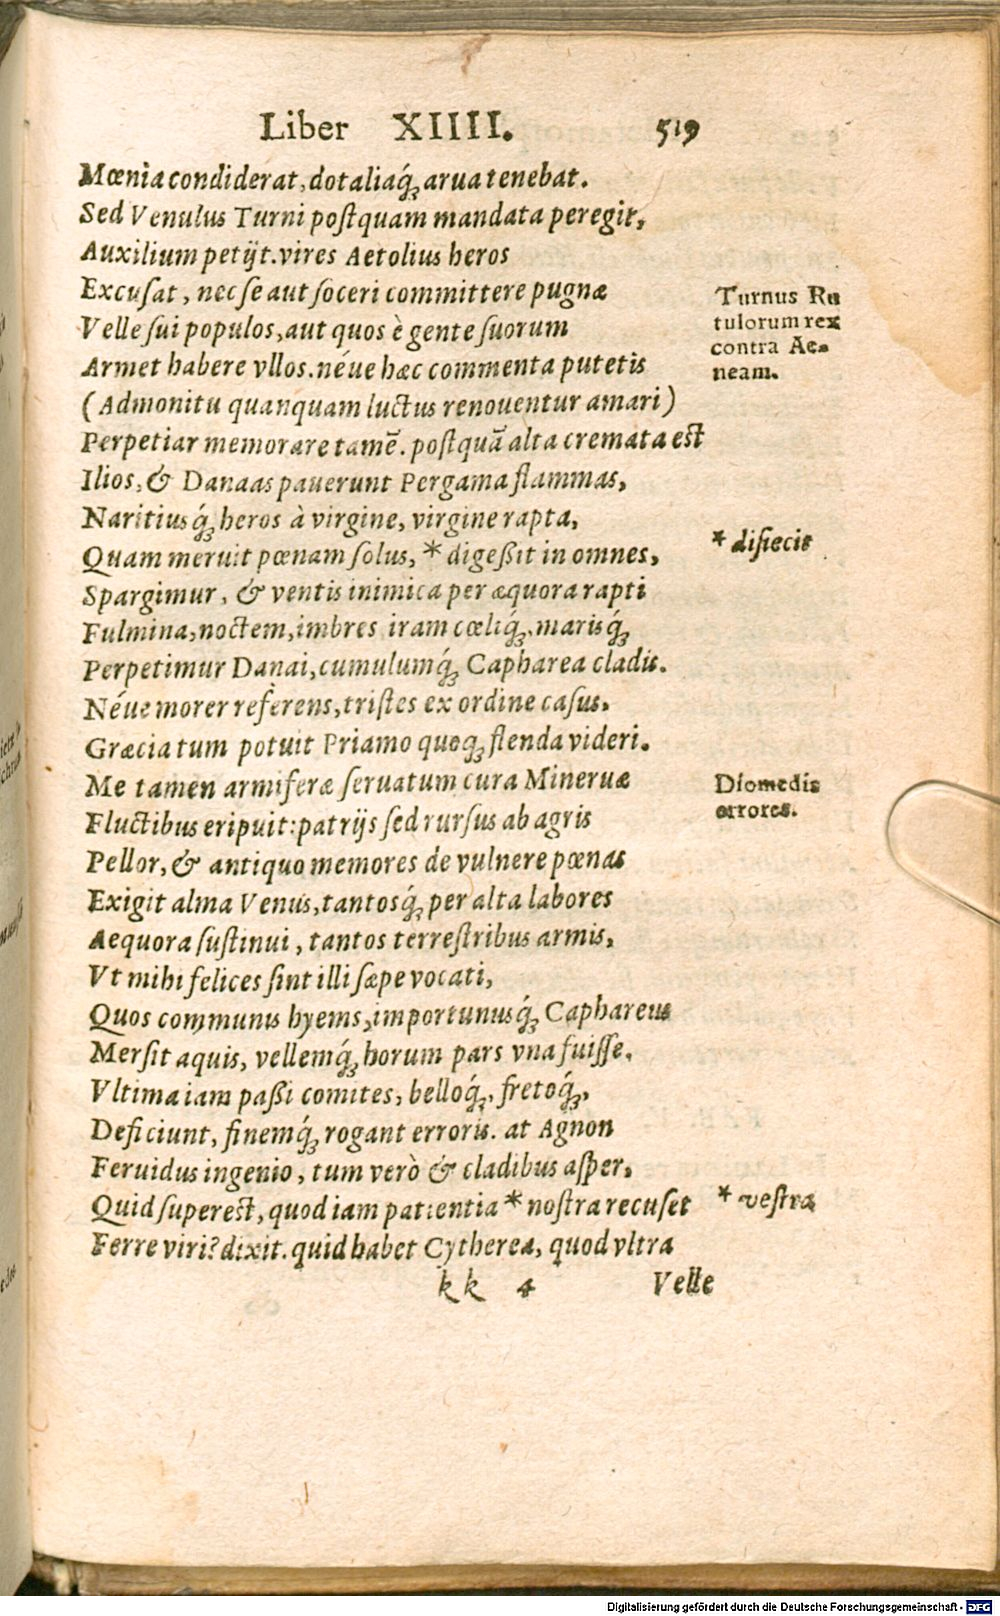 Liber XIIII. 519
Mœnia condiderat, dotaliaq́ꝫ arua tenebat.
Sed Venulus Turni postquam mandata peregit,
Auxilium petijt. vires Aetolius heros
Excusat, nec se aut soceri committere pugnæ
Velle sui populos, aut quos è gente suorum
Armet habere vllos. néue hæc commenta putetis
(Admonitu quanquam luctus renouentur amari)
Perpetiar memorare tamē. postquā alta cremata est
Ilios, & Danaas pauerunt Pergama flammas,
Naritiusq́ꝫ heros à virgine, virgine rapta,
Quam meruit pœnam solus, * digeßit in omnes,
Spargimur, & ventis inimica per æquora rapti
Fulmina, noctem, imbres iram cœliq́ꝫ, marisq́ꝫ
Perpetimur Danai, cumulumq́ꝫ Capharea cladis.
Néue morer referens, tristes ex ordine casus,
Græcia tum potuit Priamo quoqꝫ flenda videri.
Me tamen armiferæ seruatum cura Mineruæ
Fluctibus eripuit: patrijs sed rursus ab agris
Pellor, & antiquo memores de vulnere pœnas
Exigit alma Venus, tantosq́ꝫ per alta labores
Aequora sustinui, tantos terrestribus armis,
Vt mihi felices sint illi sæpe vocati,
Quos communis hyems, importunusq́ꝫ Caphareus
Mersit aquis, vellemq́ꝫ horum pars vna fuisse.
Vltima iam paßi comites, belloq́ꝫ, fretoq́ꝫ,
Deficiunt, finemq́ꝫ rogant erroris. at Agnon
Feruidus ingenio, tum verò & cladibus asper,
Quid superest, quod iam patientia * nostra recuset
Ferre viri? dixit. quid habet Cytherea, quod vltra
kk 4 Velle
Turnus Ru
tulorum rex
contra Ae-
neam.
* disiecit
Diomedis
errores.
* vestra
Digitalisierung gefördert durch die Deutsche Forschungsgemeinschaft - DFG